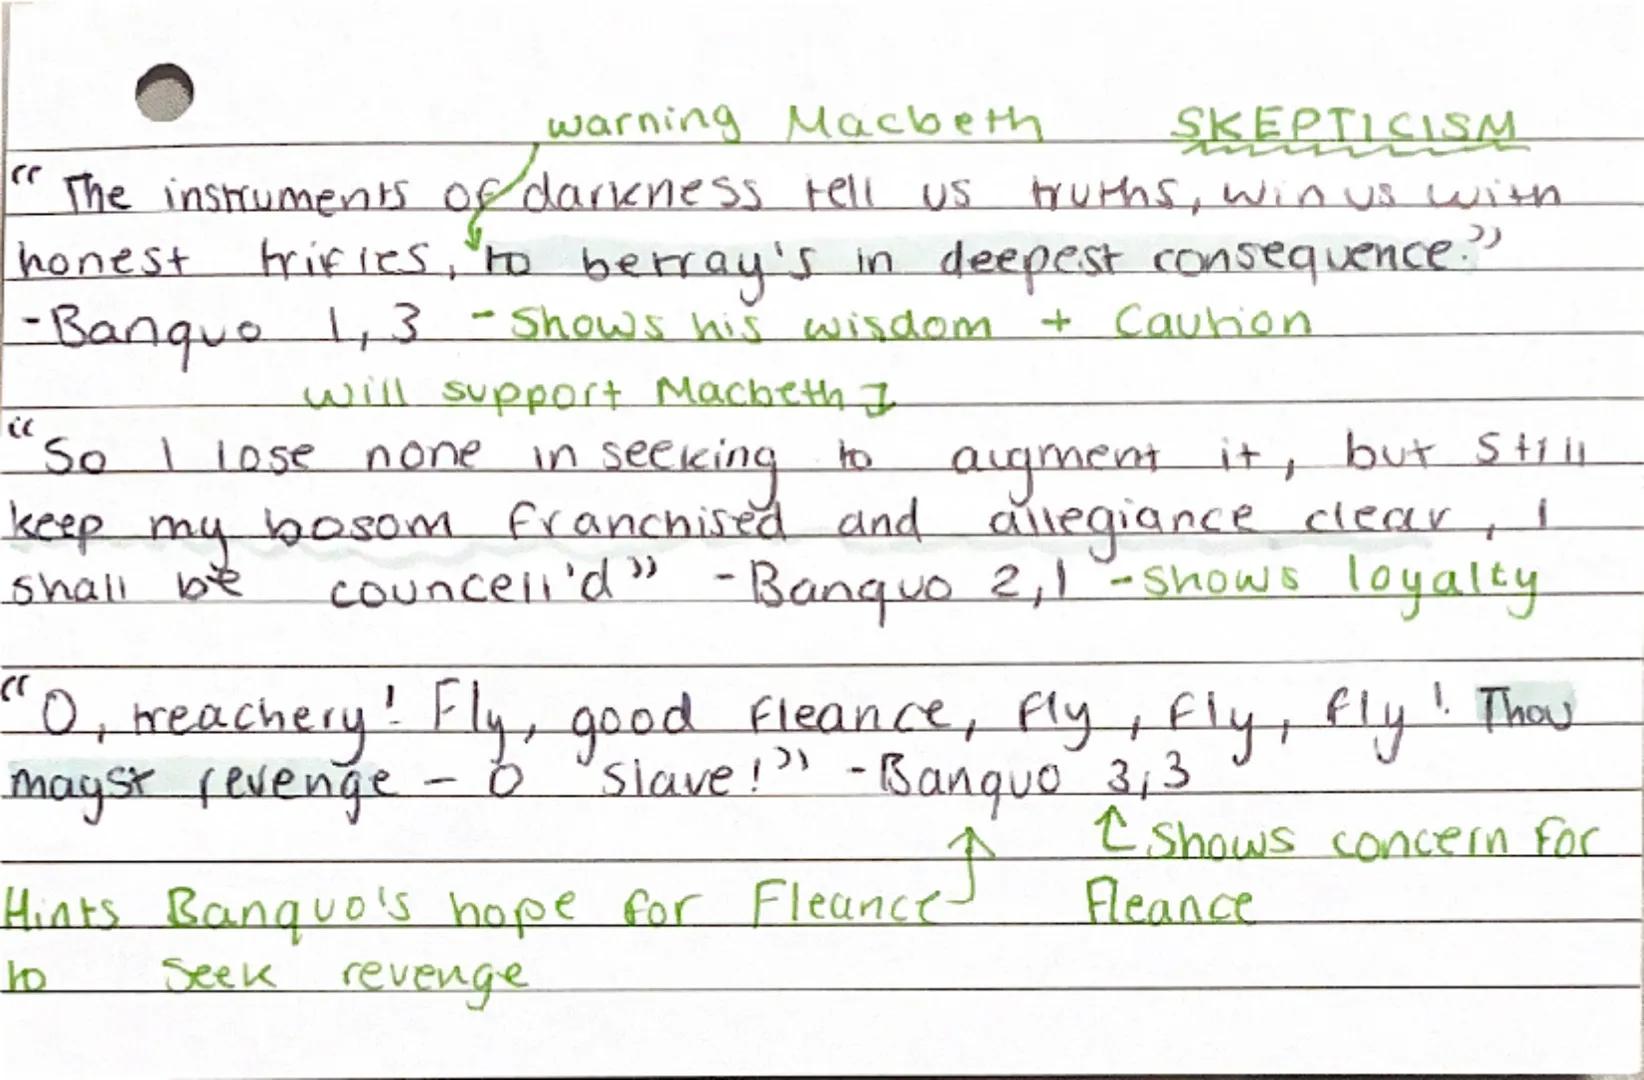 warning Macbeth SKEPTICISM
"The instruments of darkness tell us truths, win us with
honest trifles, to betray's in deepest consequence."
-Banquo 1,3 - Shows his wisdom + Caution
will support Macbeth
"So I lose none in seeking to augment it, but still
keep my bosom franchised and allegiance clear, I
shall be councell'd" -Banquo 2,1 -shows loyalty
"O, treachery! Fly, good Fleance, fly, fly, fly! Thou
mayst revenge - O slave!" -Banquo 3,3
Shows concern for
Hints Banquo's hope for Fleance Fleance
to seek revenge